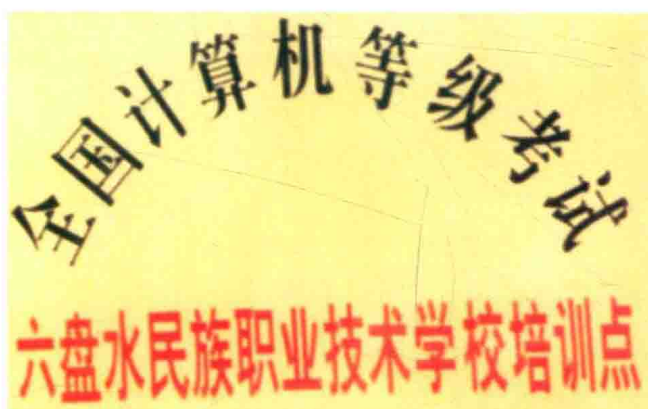 全国计算机等级考试
六盘水民族职业技术学校培训点